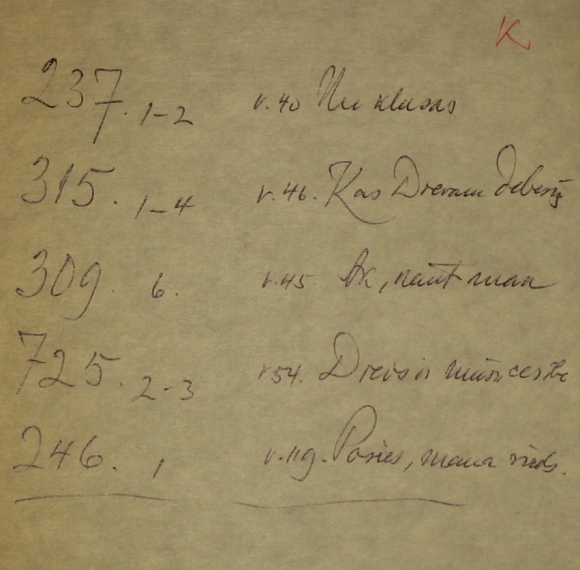 K
237. 1-2 v.40 Nu klusas
315. 1-4 v.46. Kas Dievam debesīs
309. 6. v.45 Ak, naut man
725. 2-3 v54. Dievs ir mūsu
246. 1 v.119. Posies, mana sirds.